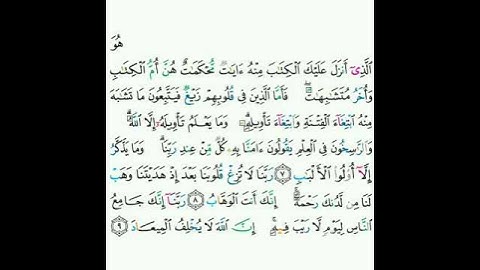 هُوَ
الَّذِىٓ أَنزَلَ عَلَيْكَ الْكِتَابَ مِنْهُ ءَايَاتٌ مُّحْكَمَاتٌ هُنَّ أُمُّ الْكِتَابِ
وَأُخَرُ مُتَشَابِهَاتٌ ۖ فَأَمَّا الَّذِينَ فِى قُلُوبِهِمْ زَيْغٌ فَيَتَّبِعُونَ مَا تَشَابَهَ
مِنْهُ ابْتِغَآءَ الْفِتْنَةِ وَابْتِغَآءَ تَأْوِيلِهِۦ ۗ وَمَا يَعْلَمُ تَأْوِيلَهُۥٓ إِلَّا اللَّهُ ۗ
وَالرَّاسِخُونَ فِى الْعِلْمِ يَقُولُونَ ءَامَنَّا بِهِۦ كُلٌّ مِّنْ عِندِ رَبِّنَا ۗ وَمَا يَذَّكَّرُ
إِلَّآ أُو۟لُوا۟ الْأَلْبَابِ ٧ رَبَّنَا لَا تُزِغْ قُلُوبَنَا بَعْدَ إِذْ هَدَيْتَنَا وَهَبْ
لَنَا مِن لَّدُنكَ رَحْمَةً ۚ إِنَّكَ أَنتَ الْوَهَّابُ ٨ رَبَّنَآ إِنَّكَ جَامِعُ
النَّاسِ لِيَوْمٍ لَّا رَيْبَ فِيهِ ۚ إِنَّ اللَّهَ لَا يُخْلِفُ الْمِيعَادَ ٩